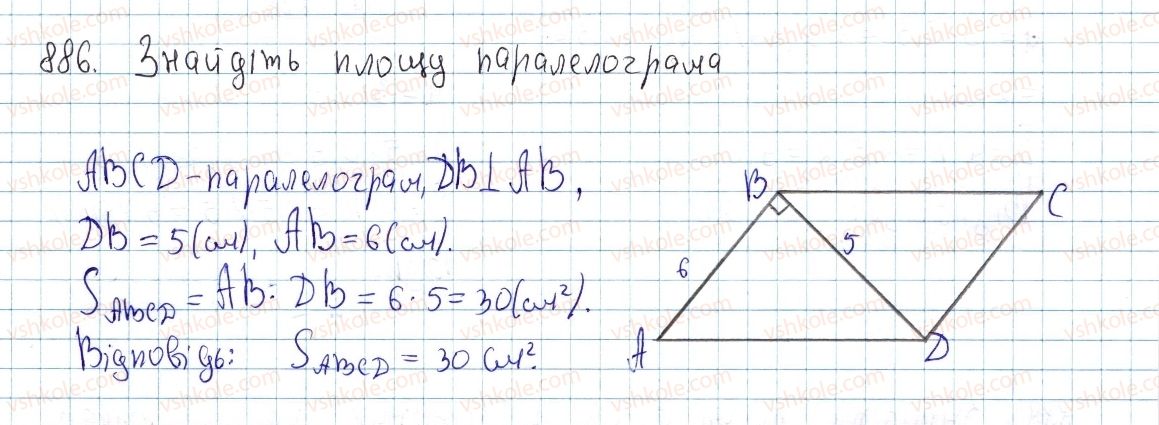 886. Знайдіть площу паралелограма
ABCD - паралелограм, DB ⊥ AB,
DB = 5 (см), AB = 6 (см).
S_ABCD = AB · DB = 6 · 5 = 30 (см²).
Відповідь: S_ABCD = 30 см².
B
C
5
6
A
D
vshkole.com